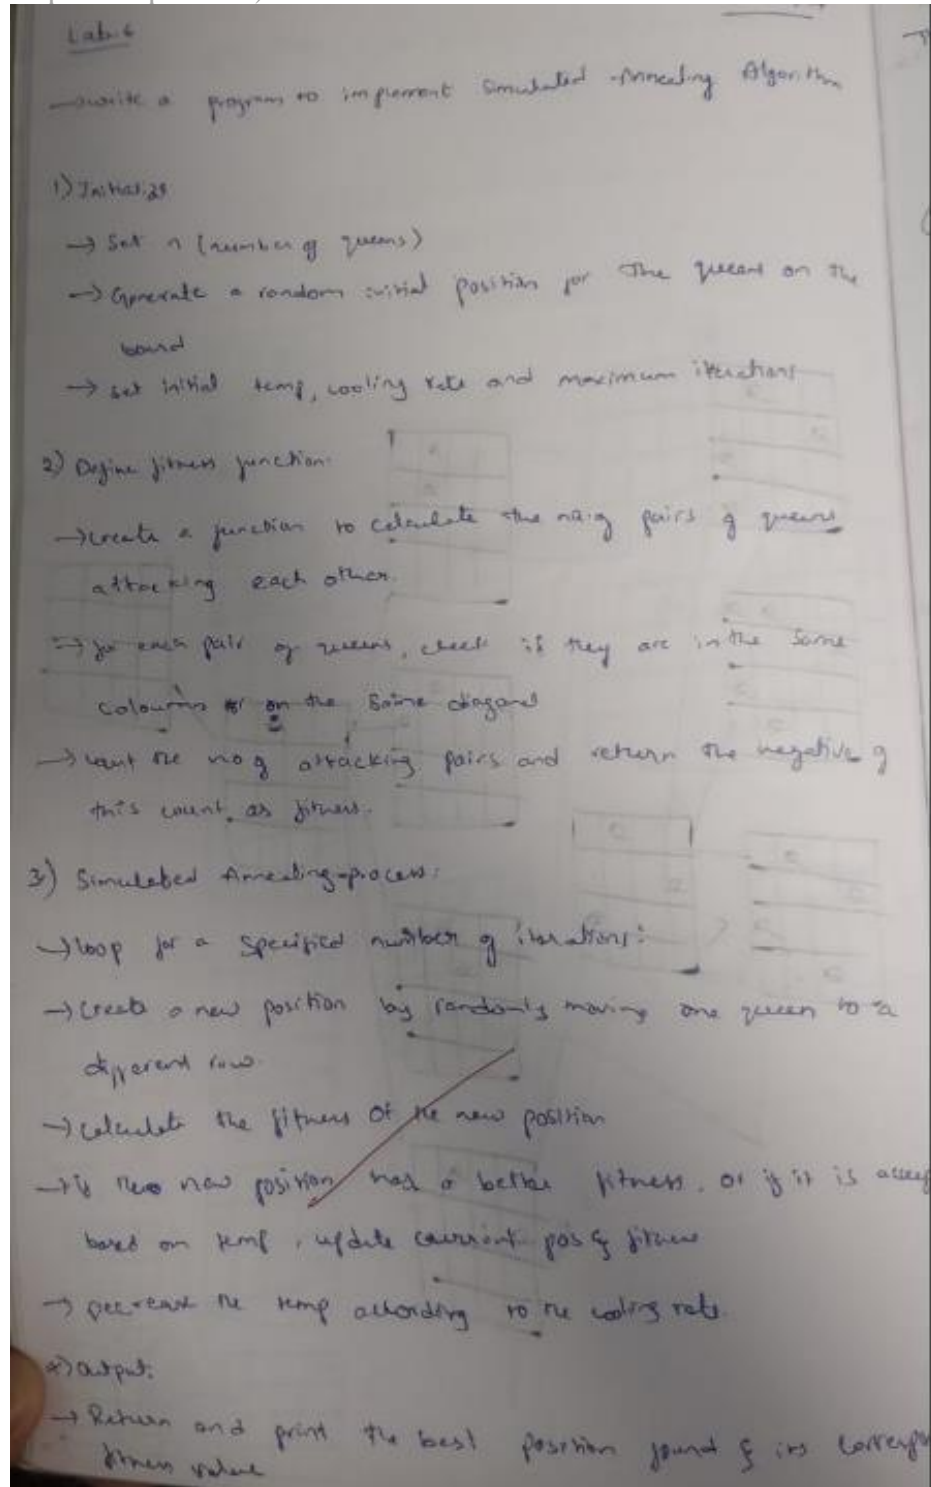 Lab-6
→ write a program to implement Simulated -Annealing Algorithm
1) Initialize
→ Set n (number of queens)
→ Generate a random initial position for the queens on the
board
→ set initial temp, cooling rate and maximum iterations
2) Define fitness function:
→ create a function to calculate the no.of pairs of queens
attacking each other.
→ for each pair of queens, check if they are in the same
coloumn or on the same diagonal
→ count the no of attacking pairs and return the negative of
this count as fitness.
3) Simulated Annealing-process:
→ loop for a specified number of iterations:
→ create a new position by randomly moving one queen to a
different row.
→ calculate the fitness of the new position
→ if new position has a better fitness, or if it is accep
based on temp, update current pos & fitness
→ Decrease the temp according to the cooling rate.
4) Output:
→ Return and print the best position found & its corresp
fitness value